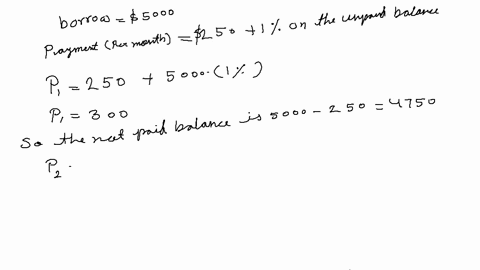 borrow = $5000
Prayment (Per month) = $250 + 1% on the unpaid balance
P₁ = 250 + 5000·(1%)
P₁ = 300
So the not paid balance is 5000 - 250 = 4750
P₂ ·